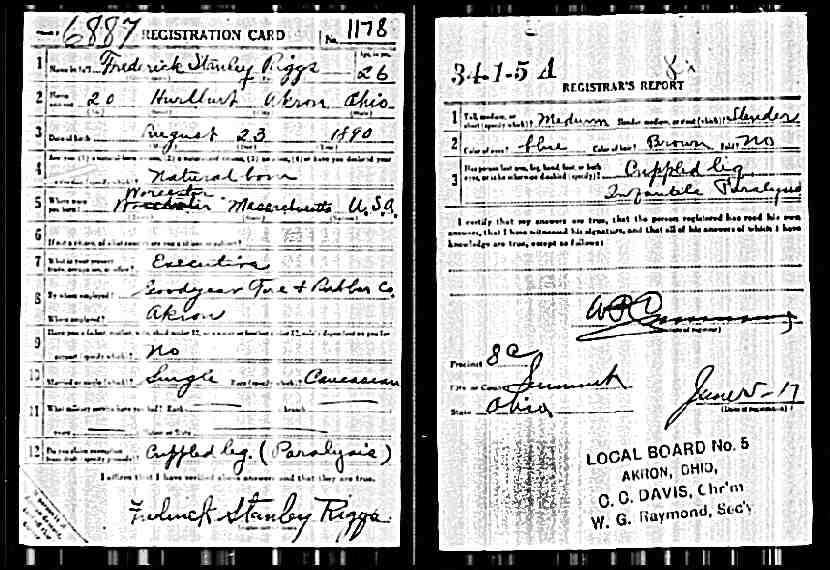 6887 REGISTRATION CARD No. 1178
1 Name in full Frederick Stanley Riggs 26
2 20 Hurlburt Akron Ohio
3 Date of birth August 23 1890
4 Natural born
5 Where were you born? Worcester Massachusetts U.S.A.
6 If not a citizen, of what country are you a citizen or subject?
7 What is your present trade, occupation, or office? Executive
8 By whom employed? Goodyear Tire & Rubber Co.
Where employed? Akron
9 Have you a father, mother, wife, child under 12, or a sister or brother under 12, solely dependent on you for
support (specify which)? No
10 Married or single (which)? Single Race (specify which)? Caucasian
11 What military service have you had? Rank branch
years Nation or State
12 Do you claim exemption from draft (specify grounds)? Crippled leg. (Paralysis)
I affirm that I have verified above answers and that they are true.
Frederick Stanley Riggs
34-1-5 A
REGISTRAR'S REPORT
1 Tall, medium, or short (specify which)? Medium Slender, medium, or stout (which)? Slender
2 Color of eyes? blue Color of hair? Brown Bald? No
3 Has person lost arm, leg, hand, foot, or both eyes, or is he otherwise disabled (specify)? Crippled leg
Infantile Paralysis
I certify that my answers are true, that the person registered has read his own
answers, that I have witnessed his signature, and that all of his answers of which I have
knowledge are true, except as follows:
(Signature of registrar)
Precinct 8C
City or County Summit
State Ohio
June 5-17
(Date of registration)
LOCAL BOARD No. 5
AKRON, OHIO,
C. C. DAVIS, Chr'm
W. G. Raymond, Sec'y